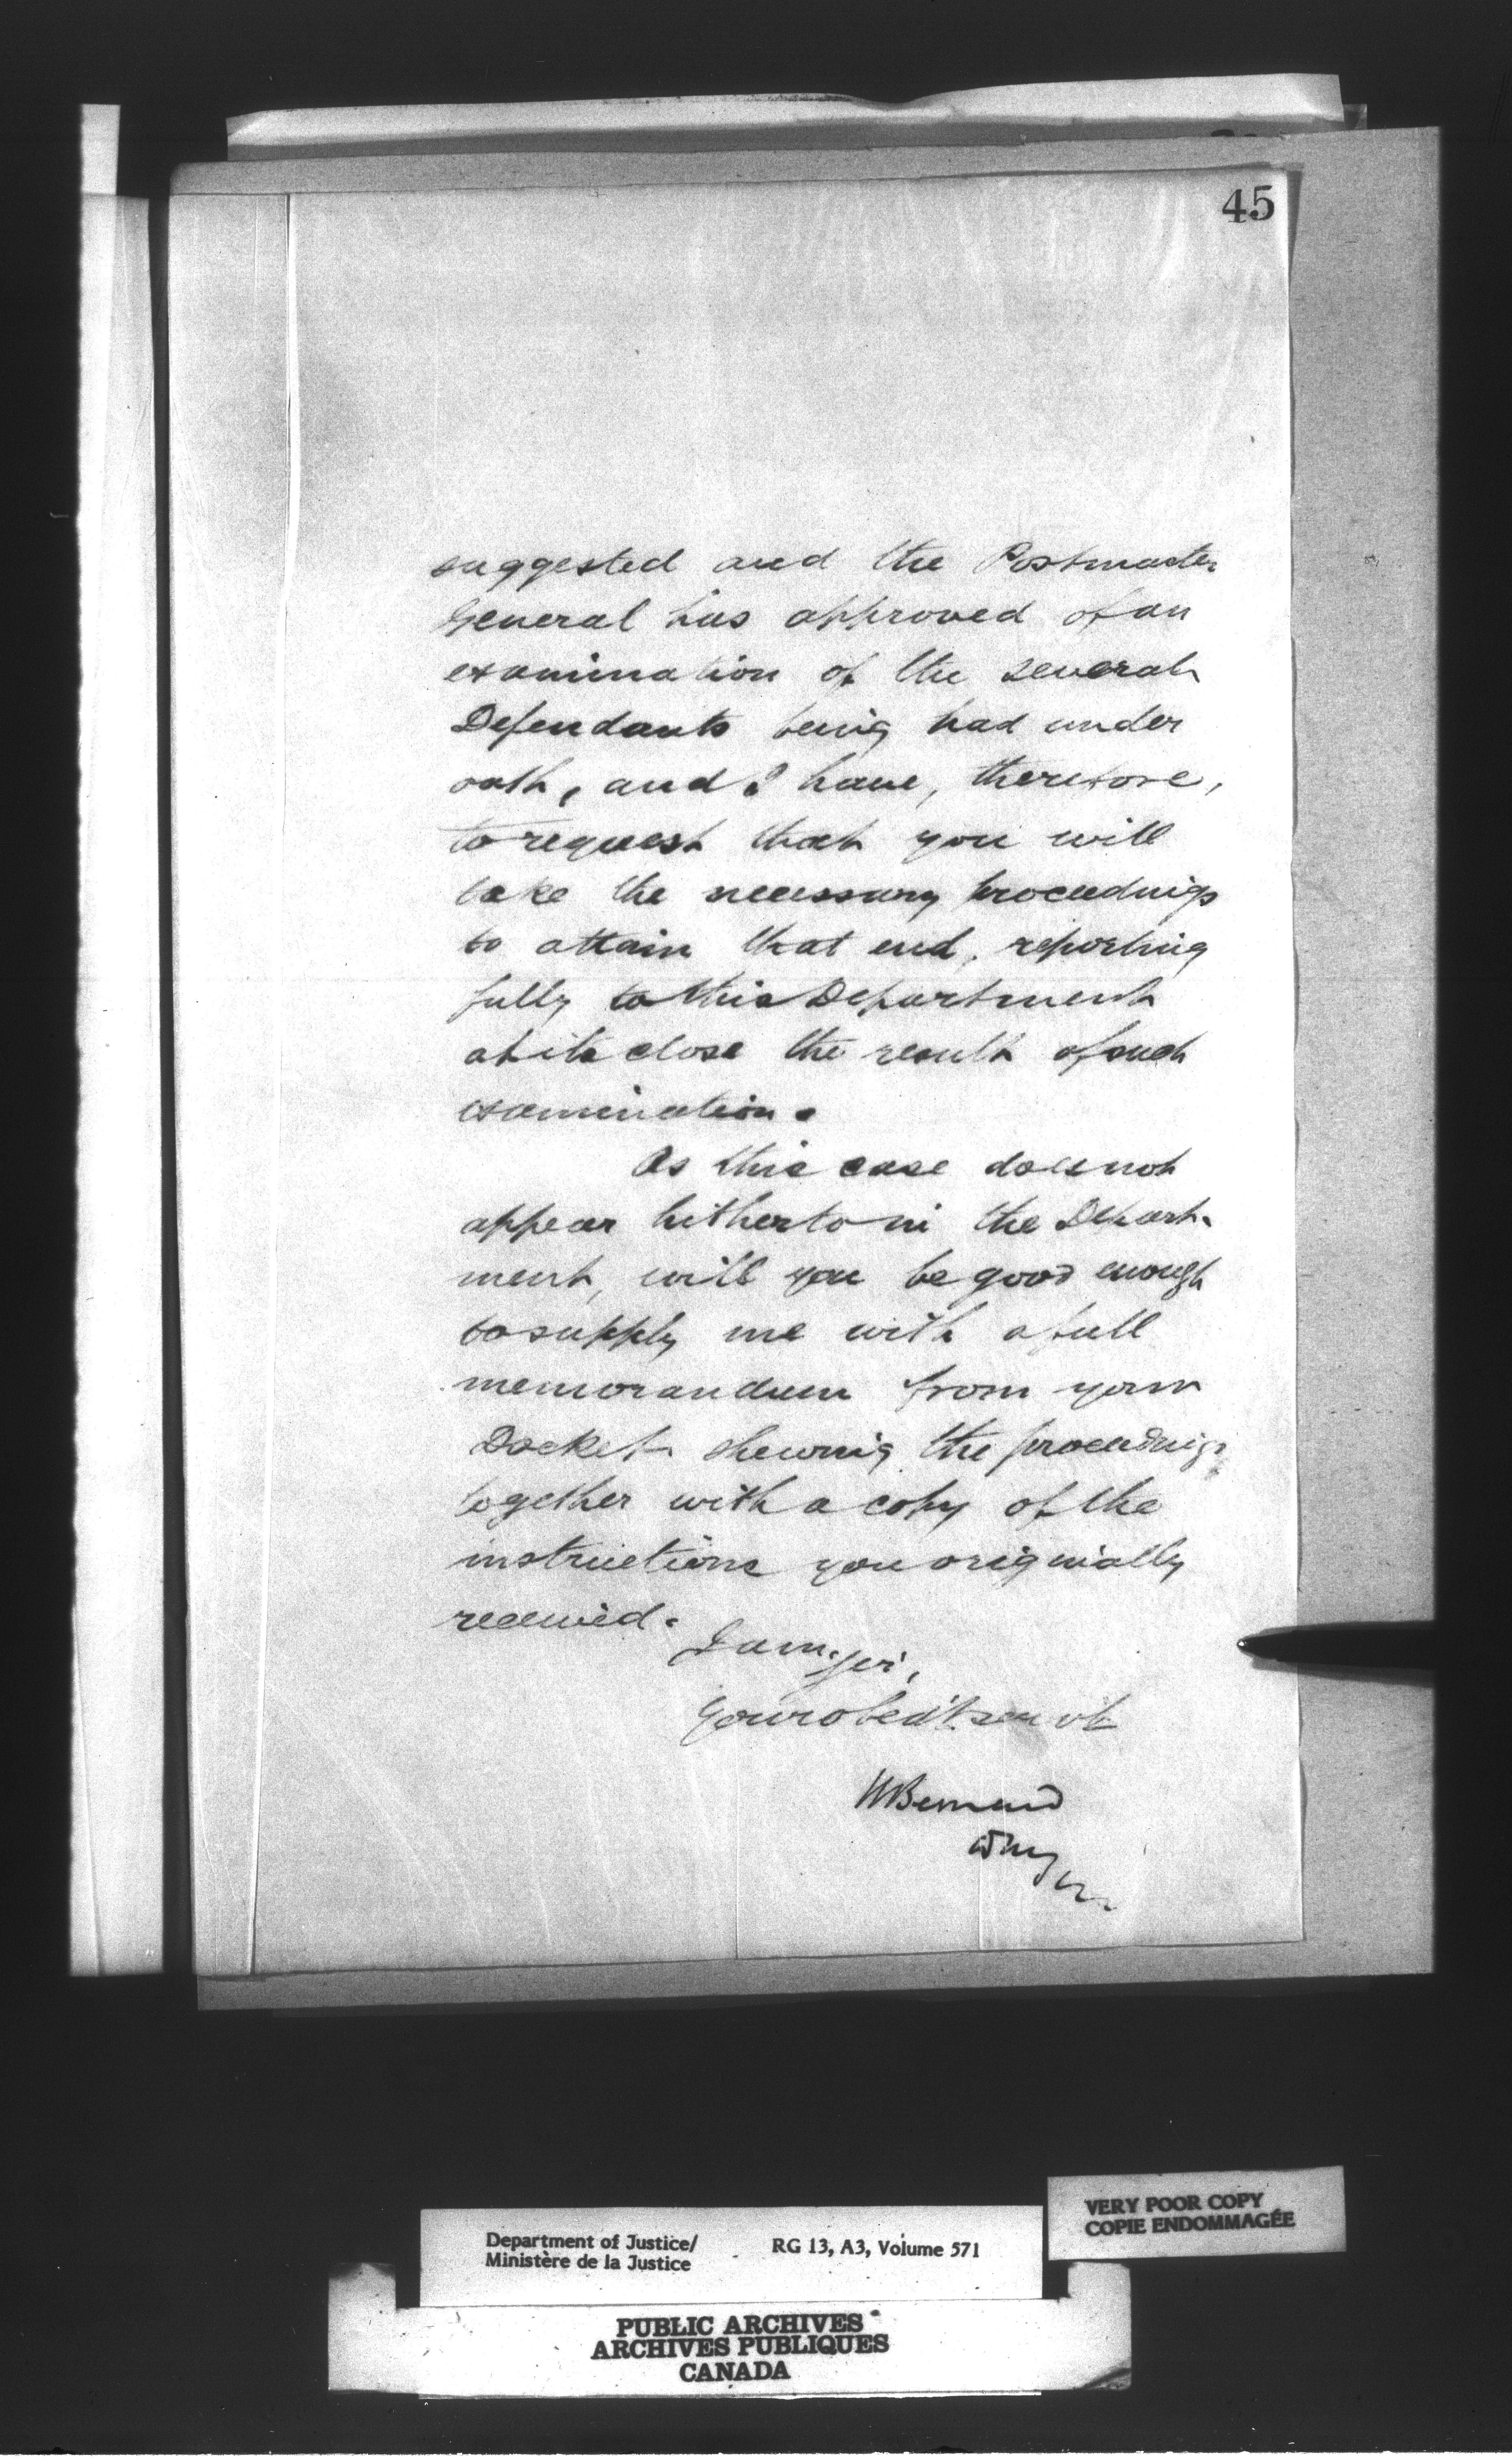 45
suggested and the Postmaster
General has approved of an
examination of the several
Defendants being had under
oath, and I have, therefore,
to request that you will
take the necessary proceedings
to attain that end, reporting
fully to this Department
at its close the result of such
examination.
As this case does not
appear hitherto in the Depart-
ment, will you be good enough
to supply me with a full
memorandum from your
Docket shewing the proceedings
together with a copy of the
instructions you originally
received.
I am, Sir,
Your obed't. servt
HBernard
VERY POOR COPY
COPIE ENDOMMAGÉE
Department of Justice/
Ministère de la Justice
RG 13, A3, Volume 571
PUBLIC ARCHIVES
ARCHIVES PUBLIQUES
CANADA